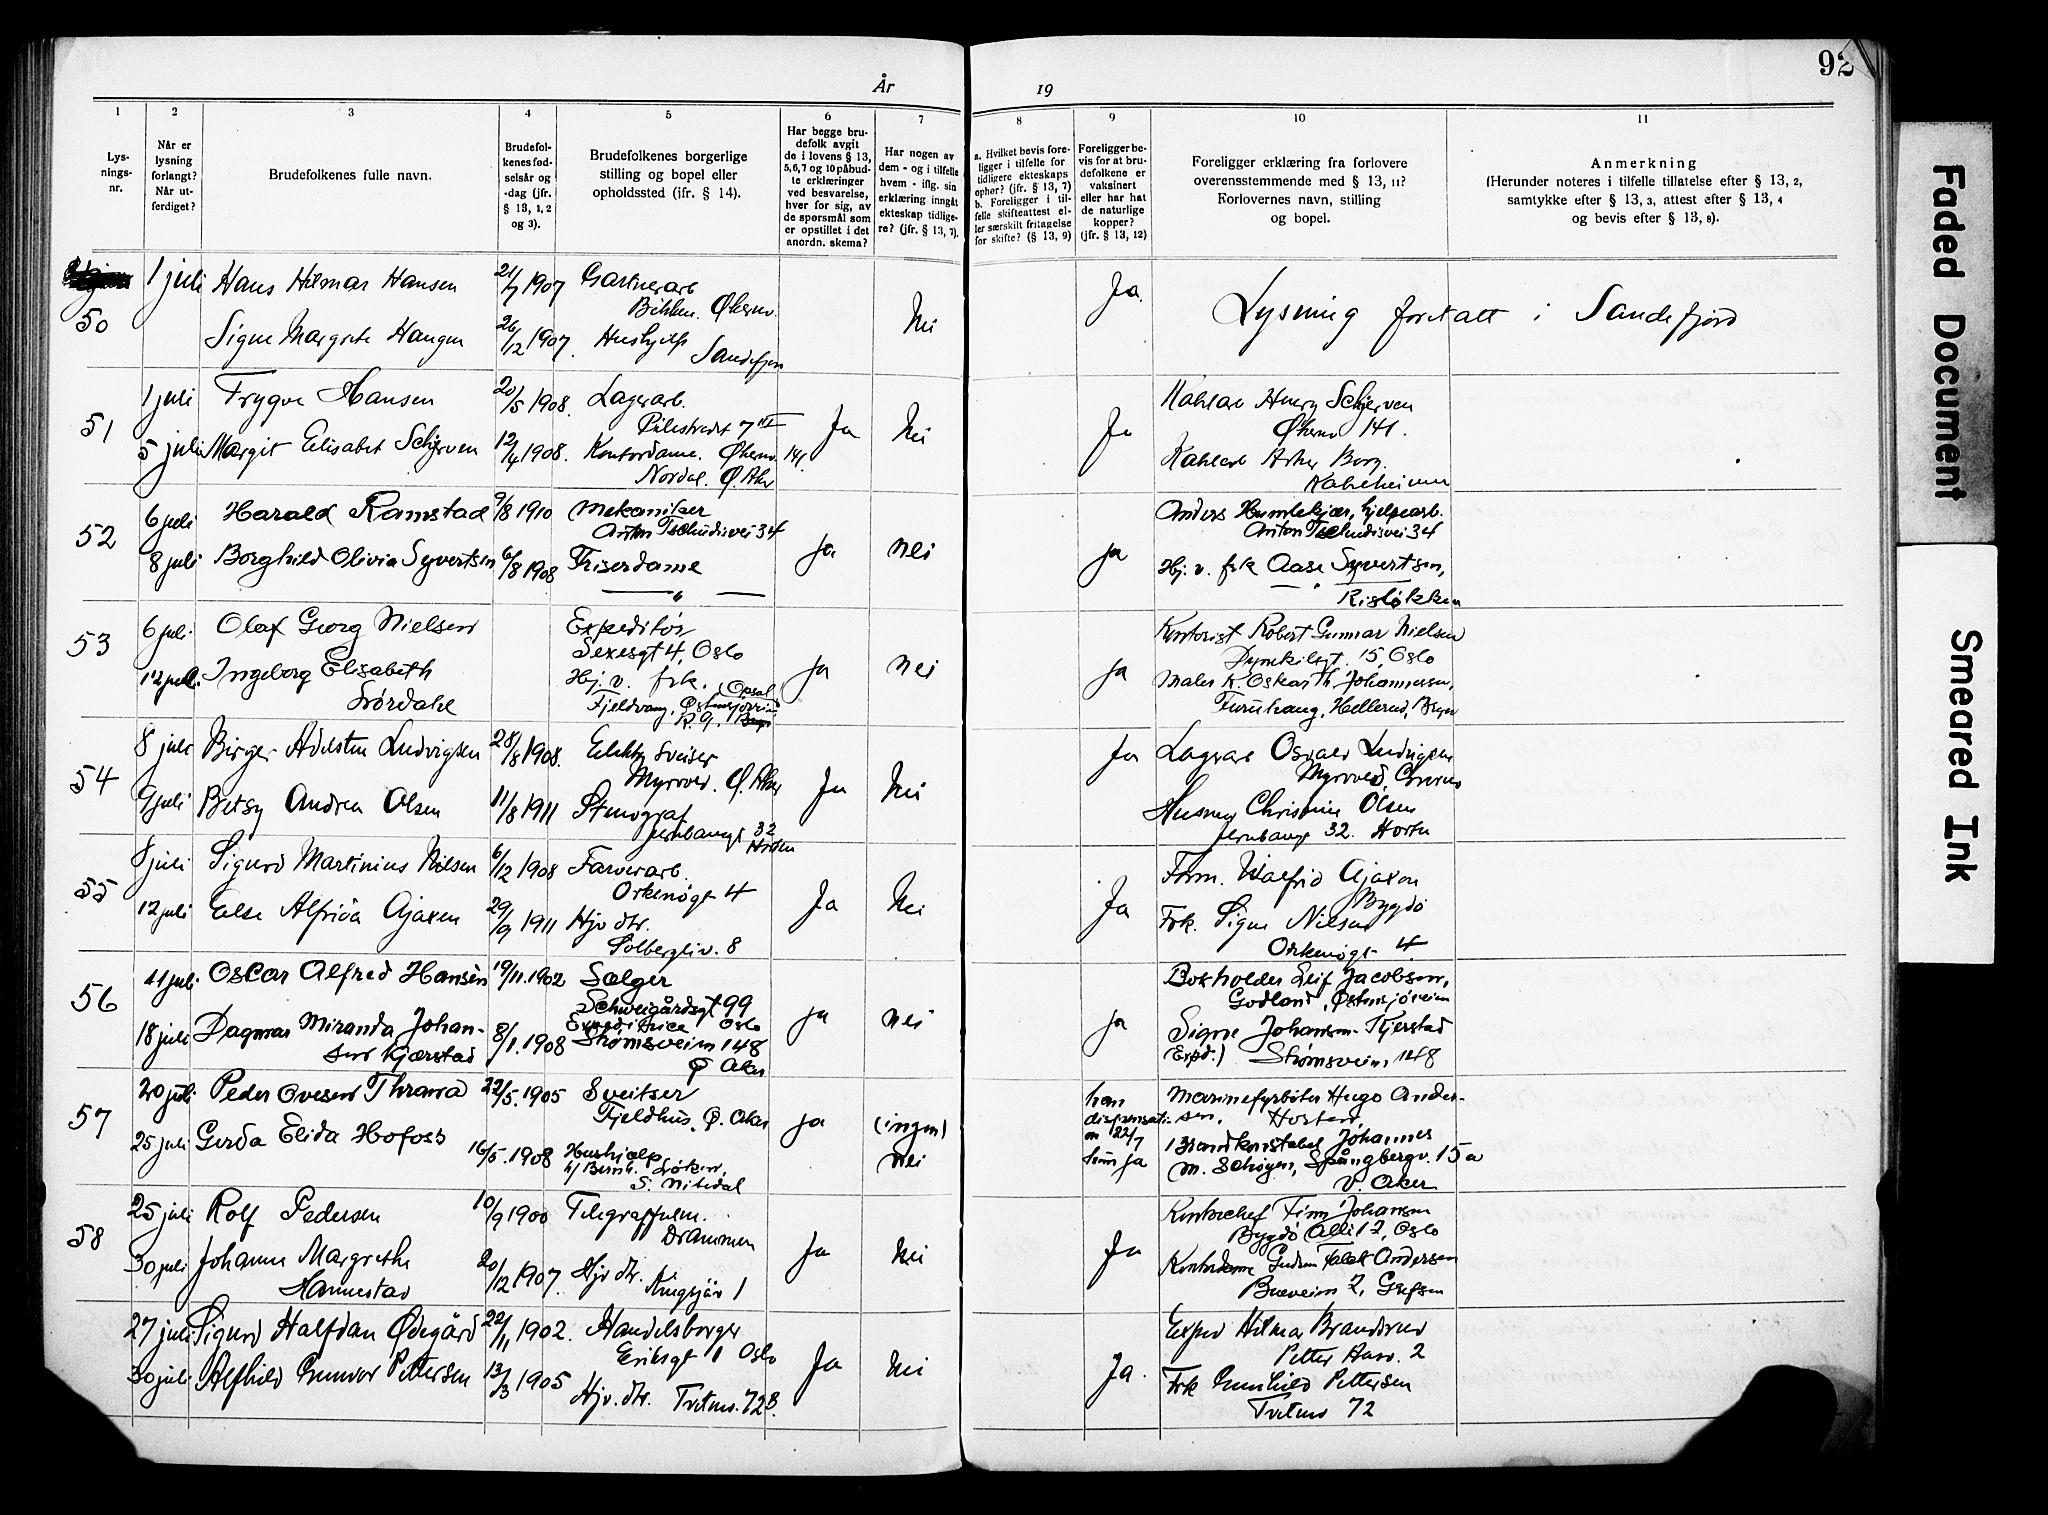 92
År 19
1
2
3
4
5
6
7
8
9
10
11
Lys-
nings-
nr.
Når er
lysning
forlangt?
Når ut-
ferdiget?
Brudefolkenes fulle navn.
Brudefol-
kenes fød-
selsår og
-dag (jfr.
§ 13, 1, 2
og 3).
Brudefolkenes borgerlige
stilling og bopel eller
opholdssted (jfr. § 14).
Har begge bru-
defolk avgit
de i lovens § 13,
5,6,7 og 10 påbud-
te erklæringer
ved besvarelse,
hver for sig, av
de spørsmål som
er opstillet i det
anordn. skema?
Har nogen av
dem - og i tilfelle
hvem - iflg. sin
erklæring inngåt
ekteskap tidlige-
re? (jfr. § 13, 7).
a. Hvilket bevis fore-
ligger i tilfelle for
tidligere ekteskaps
ophør? (jfr. § 13, 7)
b. Foreligger i til-
felle skifteattest el-
ler særskilt fritagelse
for skifte? (§ 13, 9)
Foreligger be-
vis for at bru-
defolkene er
vaksinert
eller har hat
de naturlige
kopper?
(jfr. § 13, 12)
Foreligger erklæring fra forlovere
overensstemmende med § 13, 11?
Forlovernes navn, stilling
og bopel.
Anmerkning
(Herunder noteres i tilfelle tillatelse efter § 13, 2,
samtykke efter § 13, 3, attest efter § 13, 4
og bevis efter § 13, 8).
50
1 juli Hans Hilmar Hansen 21/7 1907 Gartnerarb
Økernv.
Signe Margrete Haugen 26/12 1907 Hushjelp
Sandefjord
Nei
Ja
Lysning foretatt i Sandefjord
51
1 juli Trygve Hansen 20/5 1908. Lagerarb.
Pilestredet 7 III
5 juli Margit Elisabet Schjerven 12/4 1908. Kontordame. Økernv. 141.
Nordal. Ø. Aker
Ja Nei Ja
Henry Schjerven
Økernv 141.
Borg.
52
6 juli Harald Ramstad 9/8 1910 Mekaniker
Anton Tschudisvei 34
8 juli Borghild Olivia Syvertsen 6/8 1908 Friserdame
— " —
ja nei ja
Anders Humlekjær, hjelpearb.
Anton Tschudisvei 34
Hj. v. frk Aase Syvertsen,
— " — Risløkken
53
6 juli Olaf Georg Nielsen Expeditør
Sexesgt 4, Oslo
12 juli. Ingeborg Elisabeth
Sørdahl
Hj. v. frk. Opsal
Fjeldvang, Østensjøvein
ja nei ja
Kontorist Robert Gunnar Nielsen
Dynekilsgt. 15, Oslo
Maler K. Oskar Th. Johannessen,
Furuhaug, Hellerud, Bryn
54
8 juli Birger Adelsten Ludvigsen 28/8 1908. Elektr Sveiser
Myrvold. Ø. Aker
9 juli Betsy Andrea Olsen 11/8 1911 Stenograf
Jernbanegt 32
Horten
Ja Nei Ja
Lagerarb Osvald Ludvigsen
Myrvold,
Husmor Christine Olsen
Jernbanegt 32. Horten
55
8 juli Sigurd Martinius Nilsen 6/12 1908 Farverarb.
Orkenøgt 4
12 juli Else Alfrida Ajaxen 29/9 1911 Hjv dtr.
Solbergliv. 8
Ja Nei Ja
Form. Walfrid Ajaxen
Bygdö
Frk. Signe Nilsen
Orkenøgt 4.
56
11 juli Oscar Alfred Hansen 19/11. 1902 Sælger
Schweigårdsgt 99
Oslo
18 juli Dagmar Miranda Johan-
sen Kjærstad
8/1. 1908 Expeditrice
Strømsveien 148
Ø Aker
ja nei ja
Bokholder Leif Jacobsen,
Godland, Østensjøveien
Signe Johansen-Kjerstad
(Exped.) Strømsveien 148
57
20 juli Peder Ovesen Thrana 22/5. 1905 Sveitser
Fjeldhus, Ø. Aker
25 juli Gerda Elida Hofoss 16/5. 1908 Hushjælp
h/ Bernh. Løken,
S. Nitedal
ja (ingen)
nei
han
dispensati-
on 22/7
hun ja
Marinefyrbøter Hugo Ander-
sen, Horten,
Brandkonstabel Johannes
M. Schøyen, Spångbergv. 15a
V. Aker
58
25 juli Rolf Pedersen 10/9 1900 Telegraffulm.
Drammen
30 juli Johanne Margrethe
Hannestad
20/12 1907. Hjv dtr.
Kingsjav 1
Ja Nei Ja
Kontorchef Finn Johansen
Bygdö Allé 12, Oslo
Kontordame Gudrun Andersen
2, Grefsen
27 juli Sigurd Halfdan Ødegård 22/11 1902. Handelsborger
Eriksgt 1 Oslo
30 juli Alfhild Gunvor Pettersen 13/3 1905 Hjv. dtr. Tvetenv. 72B.
Ja Nei Ja.
Exped Hilmar Brandsrud
Petter Aasv. 2
Frk Gunhild Pettersen
Tvetenv 72
Faded Document
Smeared Ink